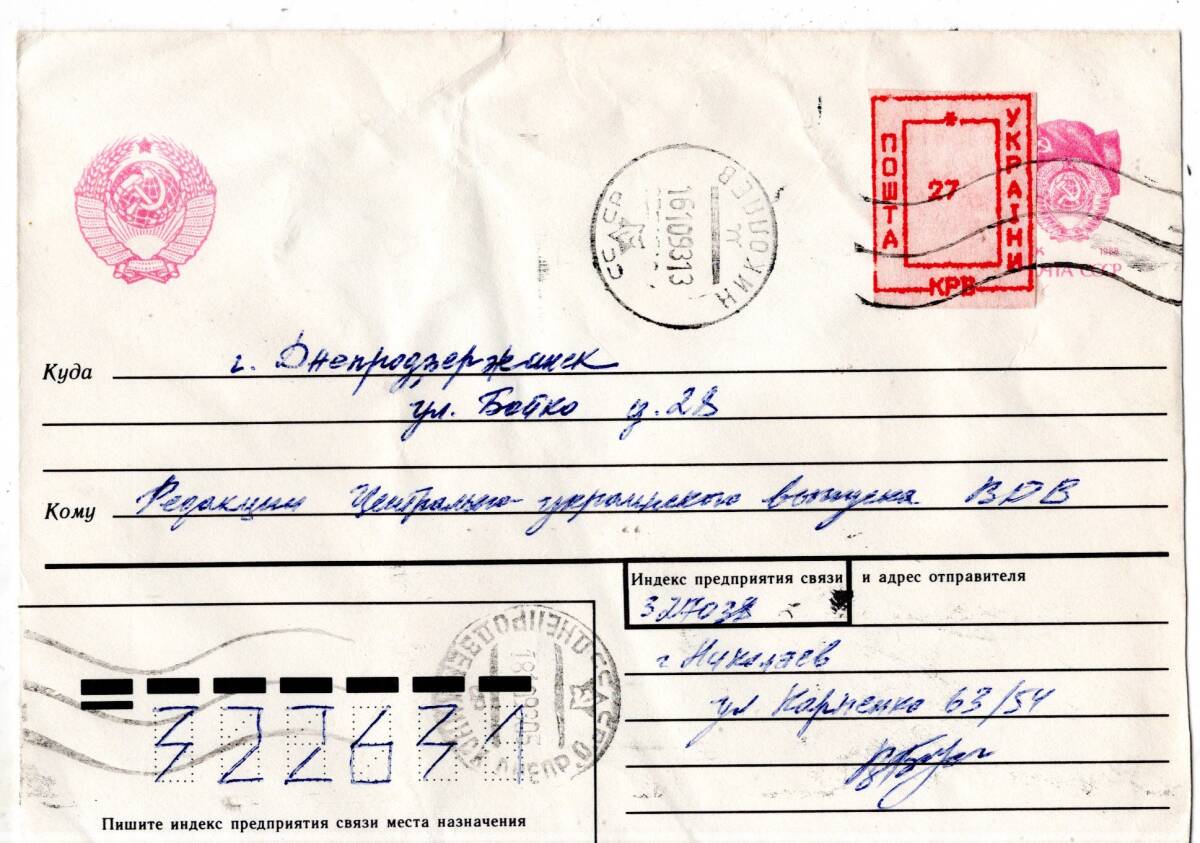 ПОШТА
УКРАЇНИ
*
27
КРВ
1988
ПОЧТА СССР
НИКОЛАЕВ
16109313
СССР
Куда г. Днепродзержинск
ул. Бойко д. 28
Кому Редакции Центрально-украинского выпуска ВДВ
Индекс предприятия связи и адрес отправителя
327038
г Николаев
ул Карпенко 63/54
322631
Пишите индекс предприятия связи места назначения